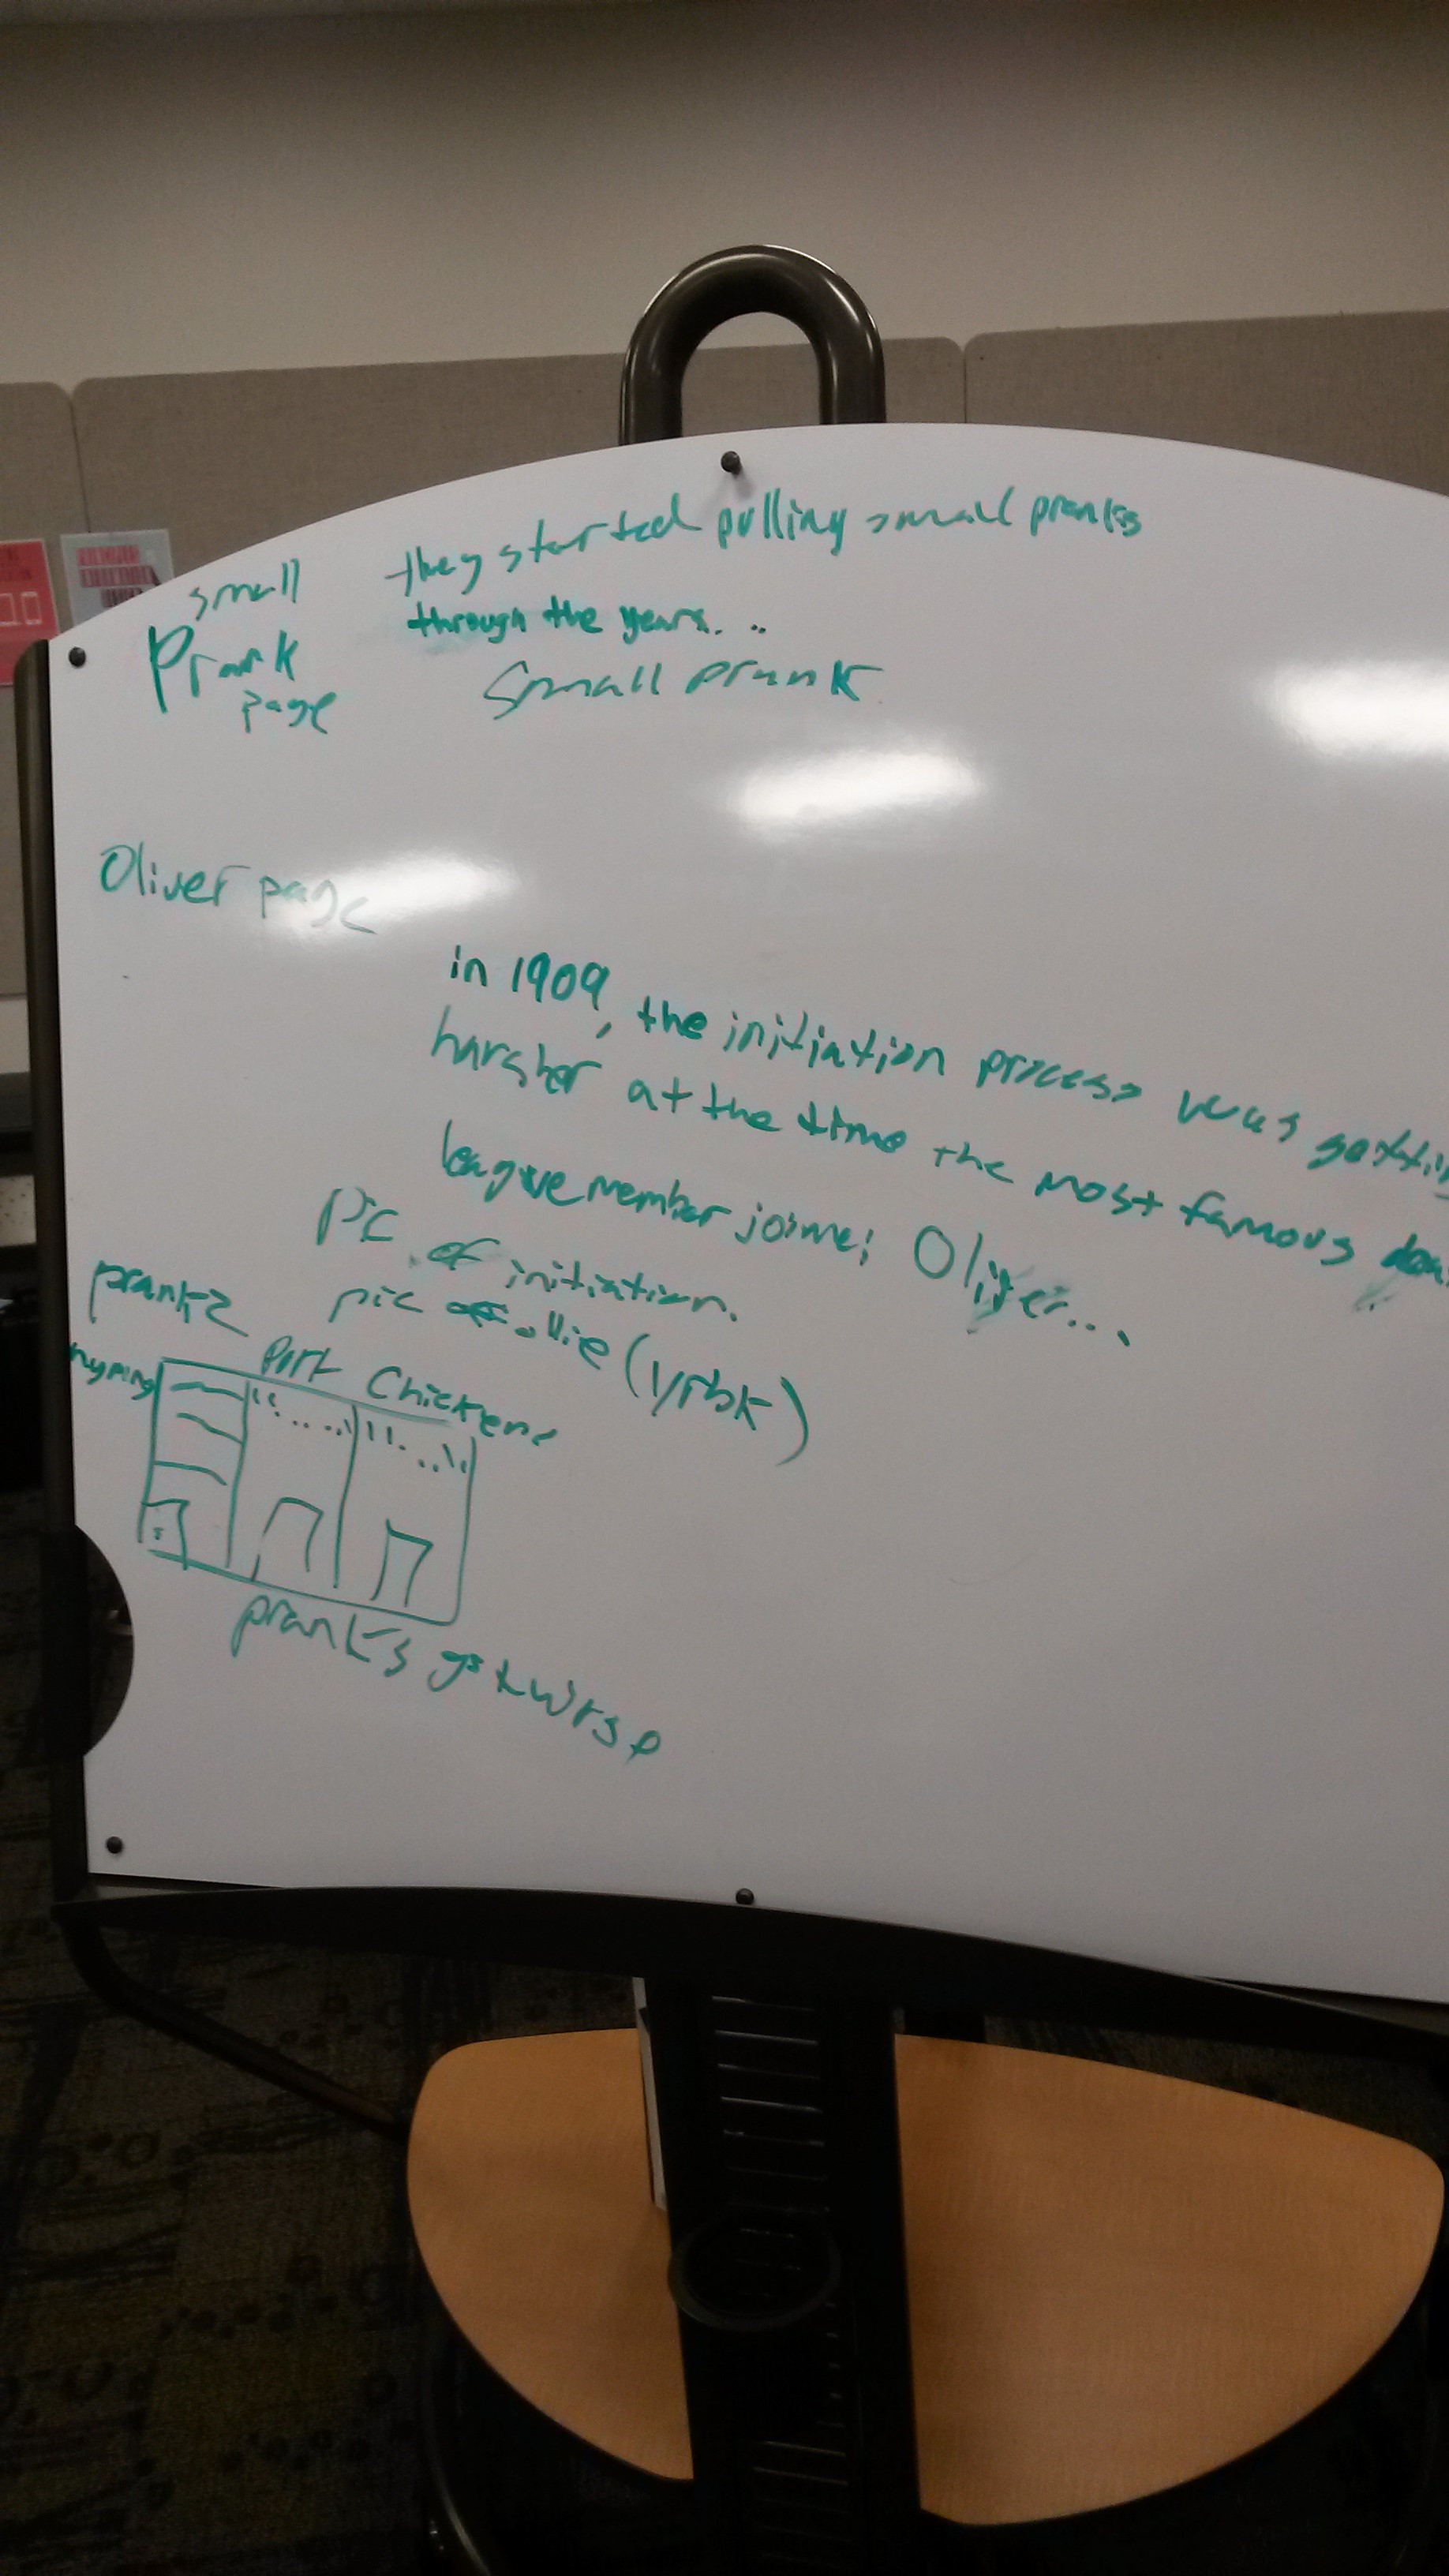 they started pulling small pranks
through the years. ..
small
Prank
page
Small prank
Oliver page
in 1909, the initiation process was gettin
harsher at the time the most famous
league member joine; Oliver...
Pic of initiation.
pic of ollie (yrbk)
prank2
Chickens
pranks get wrse